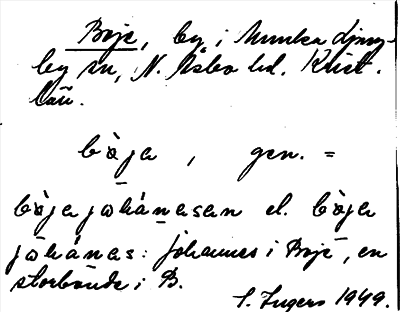 Böje, by i Munka Ljung-
by sn, N. Åsbo hd. Krist.
län.
bö̀ja, gen. =
bö̀ja johánasan el. bö̀ja
johánas: Johannes i Böje, en
storbonde i B.
S. Ingers 1949.